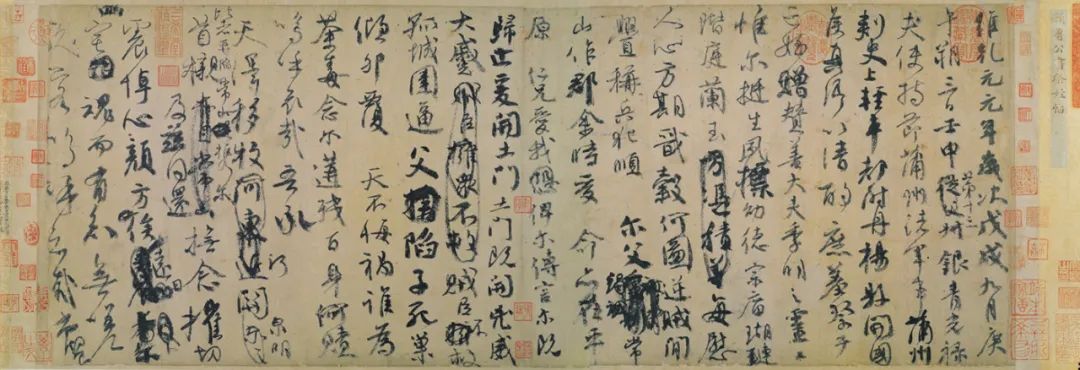 顏魯公書祭姪帖
維乾元元年歲次戊戌九月庚
午朔三日壬申第十三叔銀青光祿
夫使持節蒲州諸軍事蒲州
刺史上輕車都尉丹楊縣開國
侯真卿以清酌庶羞祭于
亡姪贈贊善大夫季明之靈曰
惟爾挺生夙標幼德宗廟瑚璉
階庭蘭玉方憑積善每慰
人心方期戩穀何圖逆賊閒
釁稱兵犯順爾父竭誠常
山作郡余時受命亦在平
原仁兄愛我俾爾傳言爾既
歸止爰開土門土門既開兇威
大蹙賊臣擁眾不救賊臣不救
孤城圍逼父陷子死巢
傾卵覆天不悔禍誰為
荼毒念爾遘殘百身何贖
嗚乎哀哉吾承
天澤移牧河關泉明
比者再陷常山攜爾
首櫬及茲同還撫念摧切
震悼心顏方俟遠日
爾幽宅魂而有知無嗟
久客嗚呼哀哉尚饗